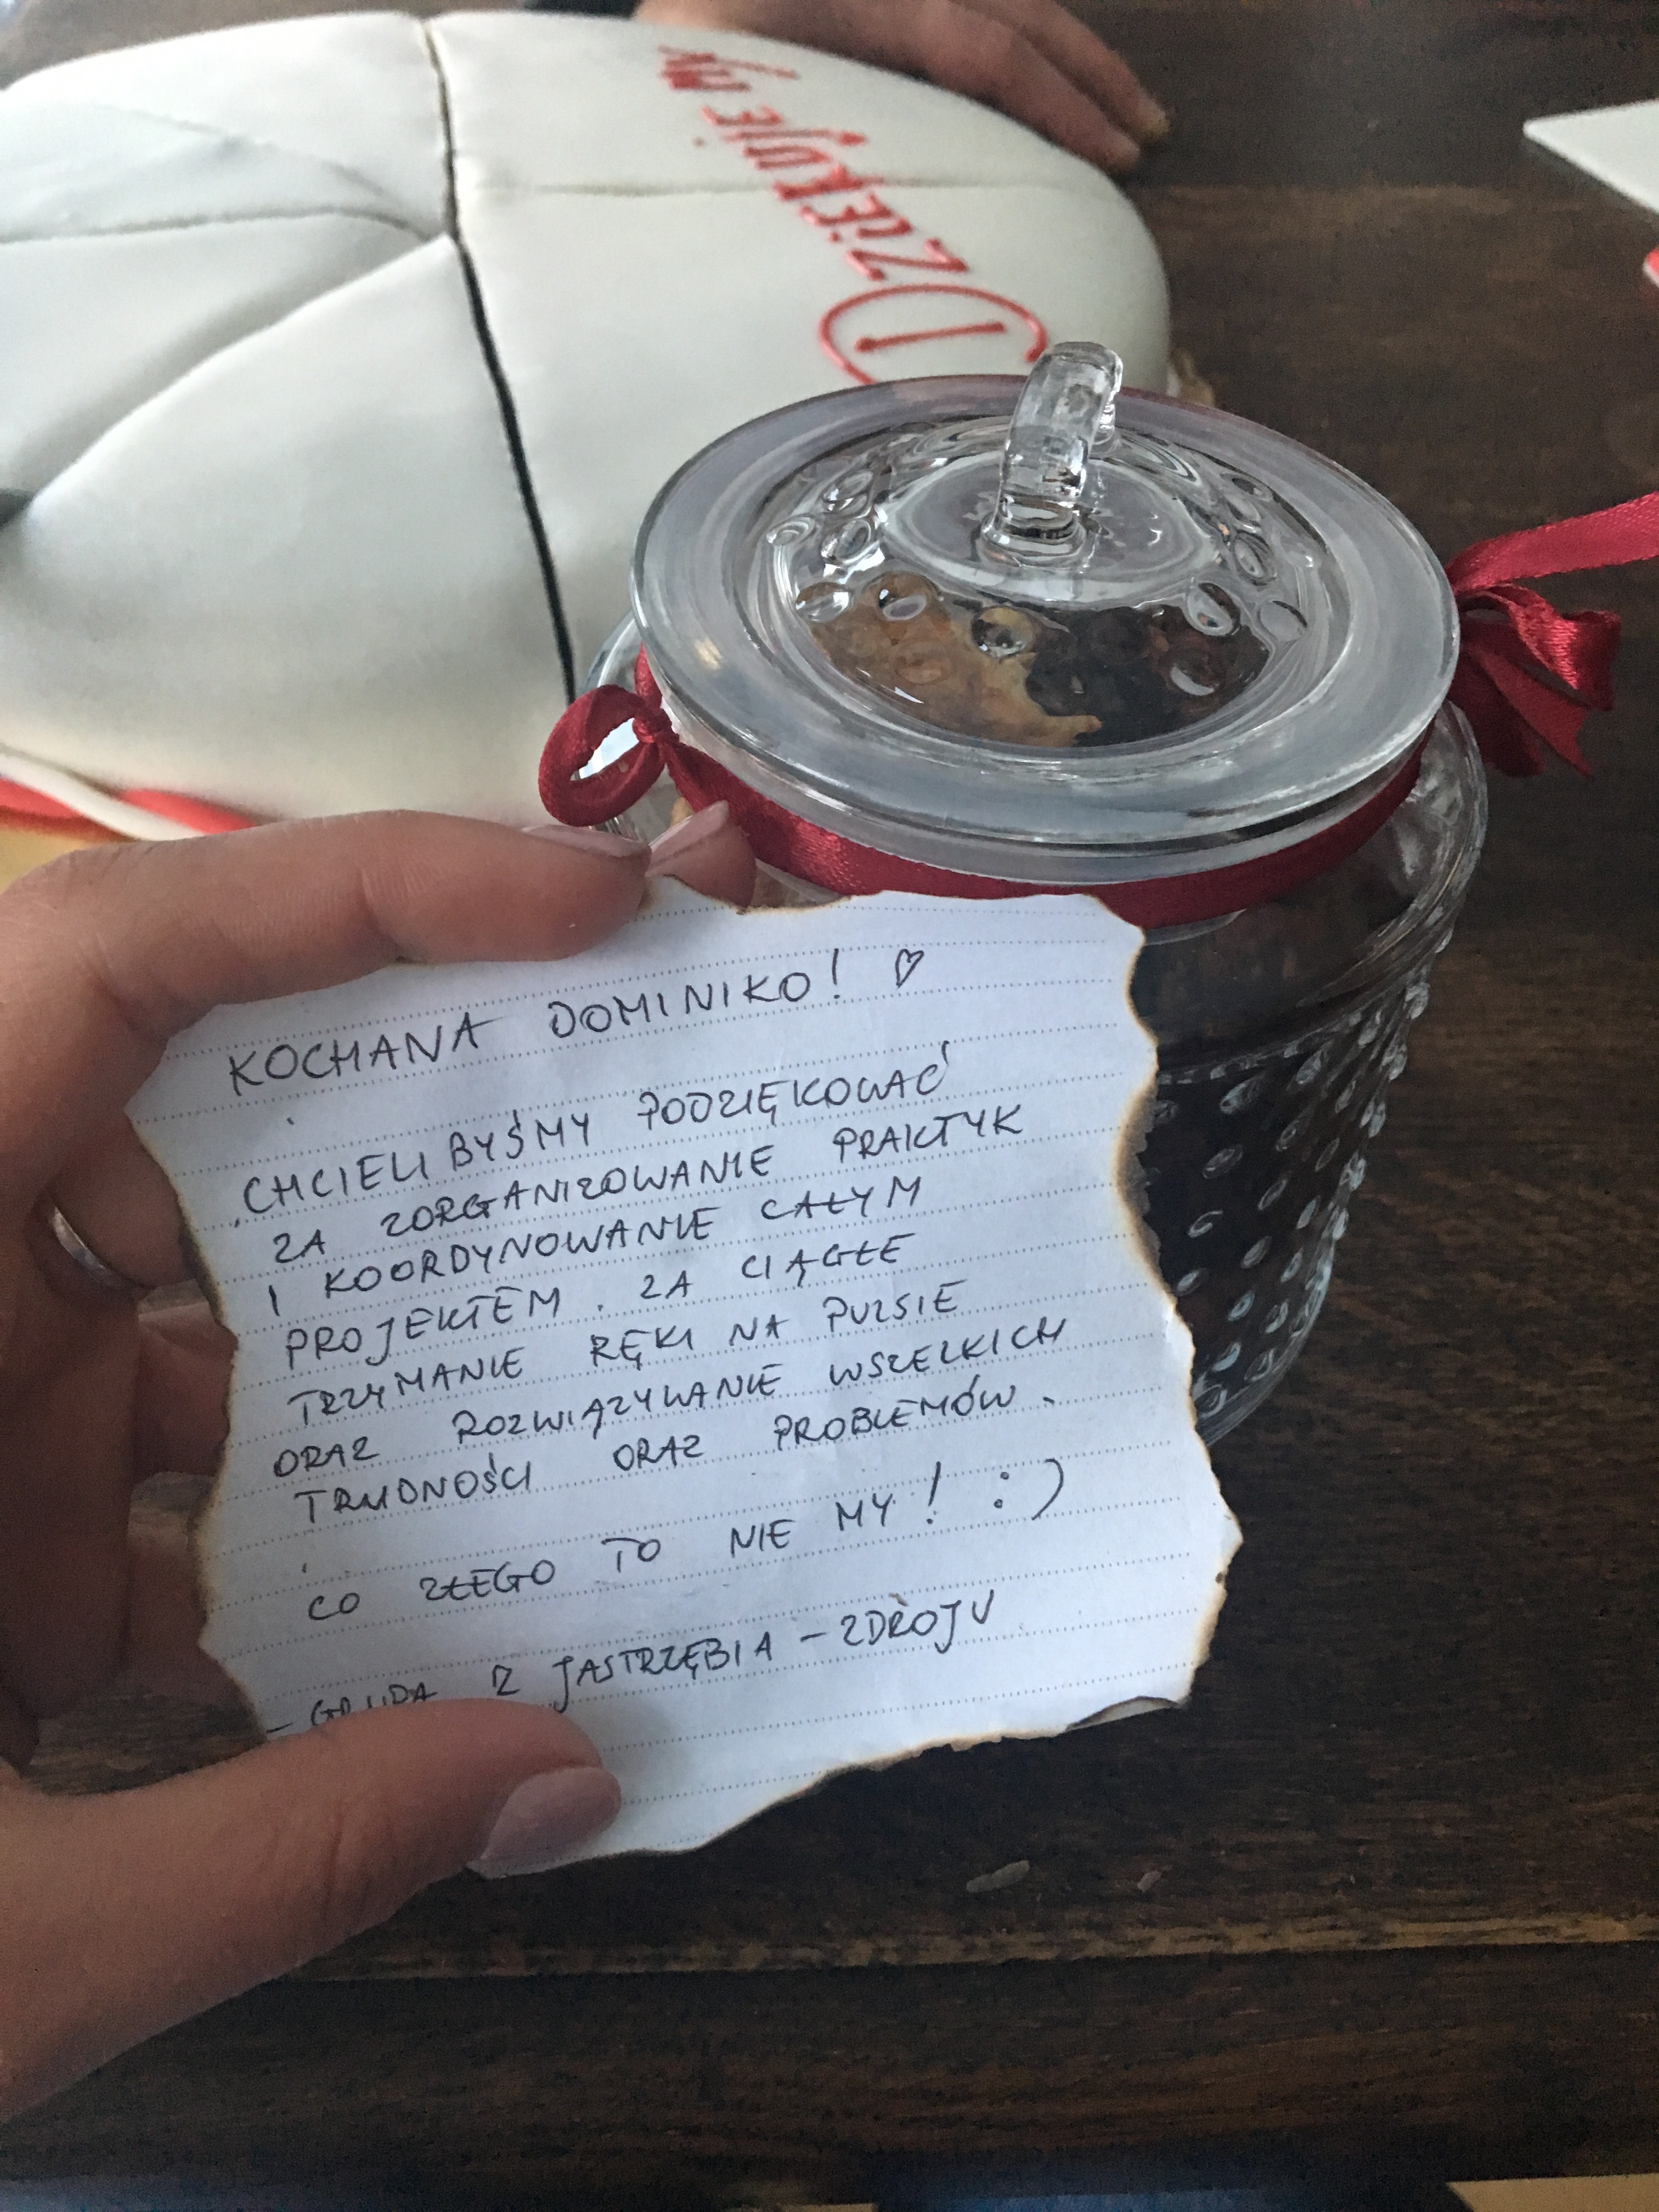 Dziękujemy
KOCHANA DOMINIKO! ♡
CHCIELIBYŚMY PODZIĘKOWAĆ
ZA ZORGANIZOWANIE PRAKTYK
I KOORDYNOWANIE CAŁYM
PROJEKTEM. ZA CIĄGŁE
TRZYMANIE RĘKI NA PULSIE
ORAZ ROZWIĄZYWANIE WSZELKICH
TRUDNOŚCI ORAZ PROBLEMÓW.
CO ZŁEGO TO NIE MY! :)
- GRUPA Z JASTRZĘBIA-ZDROJU